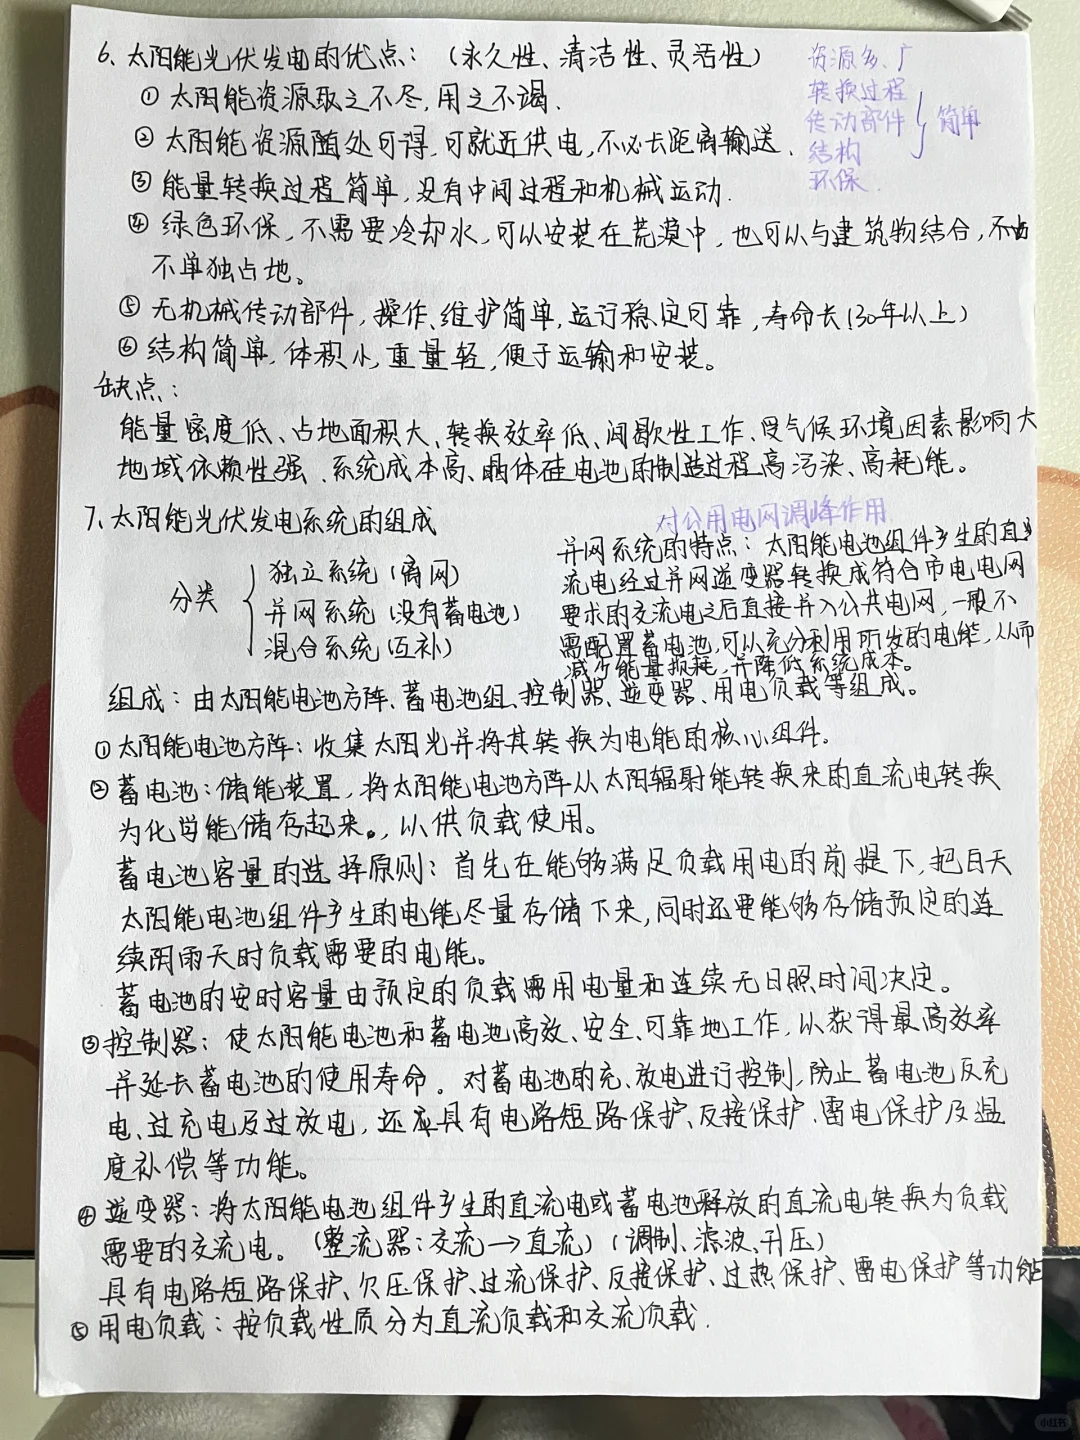 6、太阳能光伏发电的优点：（永久性、清洁性、灵活性）
资源多、广
转换过程
传动部件 } 简单
结构
环保.
① 太阳能资源取之不尽，用之不竭.
② 太阳能资源随处可得，可就近供电，不必长距离输送.
③ 能量转换过程简单，没有中间过程和机械运动.
④ 绿色环保，不需要冷却水，可以安装在荒漠中，也可以与建筑物结合，不占
不单独占地。
⑤ 无机械传动部件，操作、维护简单，运行稳定可靠，寿命长（30年以上）
⑥ 结构简单，体积小，重量轻，便于运输和安装。
缺点：
能量密度低、占地面积大、转换效率低、间歇性工作、受气候环境因素影响大
地域依赖性强、系统成本高、晶体硅电池的制造过程高污染、高耗能。
7、太阳能光伏发电系统的组成
分类 { 独立系统（离网）
并网系统（没有蓄电池）
混合系统（互补）
对公用电网调峰作用
并网系统的特点：太阳能电池组件产生的直
流电经过并网逆变器转换成符合市电电网
要求的交流电之后直接并入公共电网，一般不
需配置蓄电池，可以充分利用所发的电能，从而
减少能量损耗，并降低系统成本。
组成：由太阳能电池方阵、蓄电池组、控制器、逆变器、用电负载等组成。
① 太阳能电池方阵：收集太阳光并将其转换为电能的核心组件。
② 蓄电池：储能装置，将太阳能电池方阵从太阳辐射能转换来的直流电转换
为化学能储存起来。，以供负载使用。
蓄电池容量的选择原则：首先在能够满足负载用电的前提下，把白天
太阳能电池组件产生的电能尽量存储下来，同时还要能够存储预定的连
续阴雨天时负载需要的电能。
蓄电池的安时容量由预定的负载需用电量和连续无日照时间决定。
③ 控制器：使太阳能电池和蓄电池高效、安全、可靠地工作，以获得最高效率
并延长蓄电池的使用寿命。对蓄电池的充、放电进行控制，防止蓄电池反充
电、过充电及过放电，还应具有电路短路保护、反接保护、雷电保护及温
度补偿等功能。
④ 逆变器：将太阳能电池组件产生的直流电或蓄电池释放的直流电转换为负载
需要的交流电。（整流器：交流→直流）（调制、滤波、升压）
具有电路短路保护、欠压保护、过流保护、反接保护、过热保护、雷电保护等功能
⑤ 用电负载：按负载性质分为直流负载和交流负载.
小红书